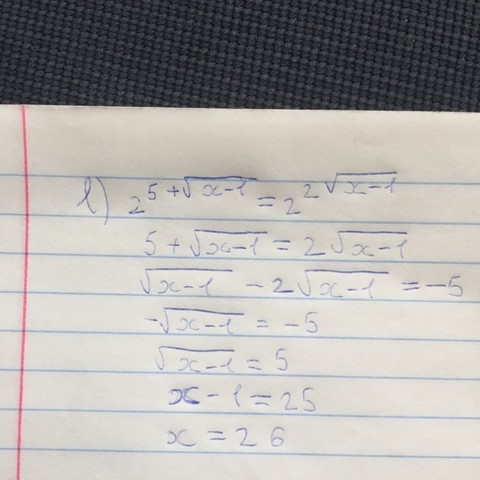 l) 2^{5+√(x-1)} = 2^{2√(x-1)}
5 + √(x-1) = 2√(x-1)
√(x-1) - 2√(x-1) = -5
-√(x-1) = -5
√(x-1) = 5
x - 1 = 25
x = 26